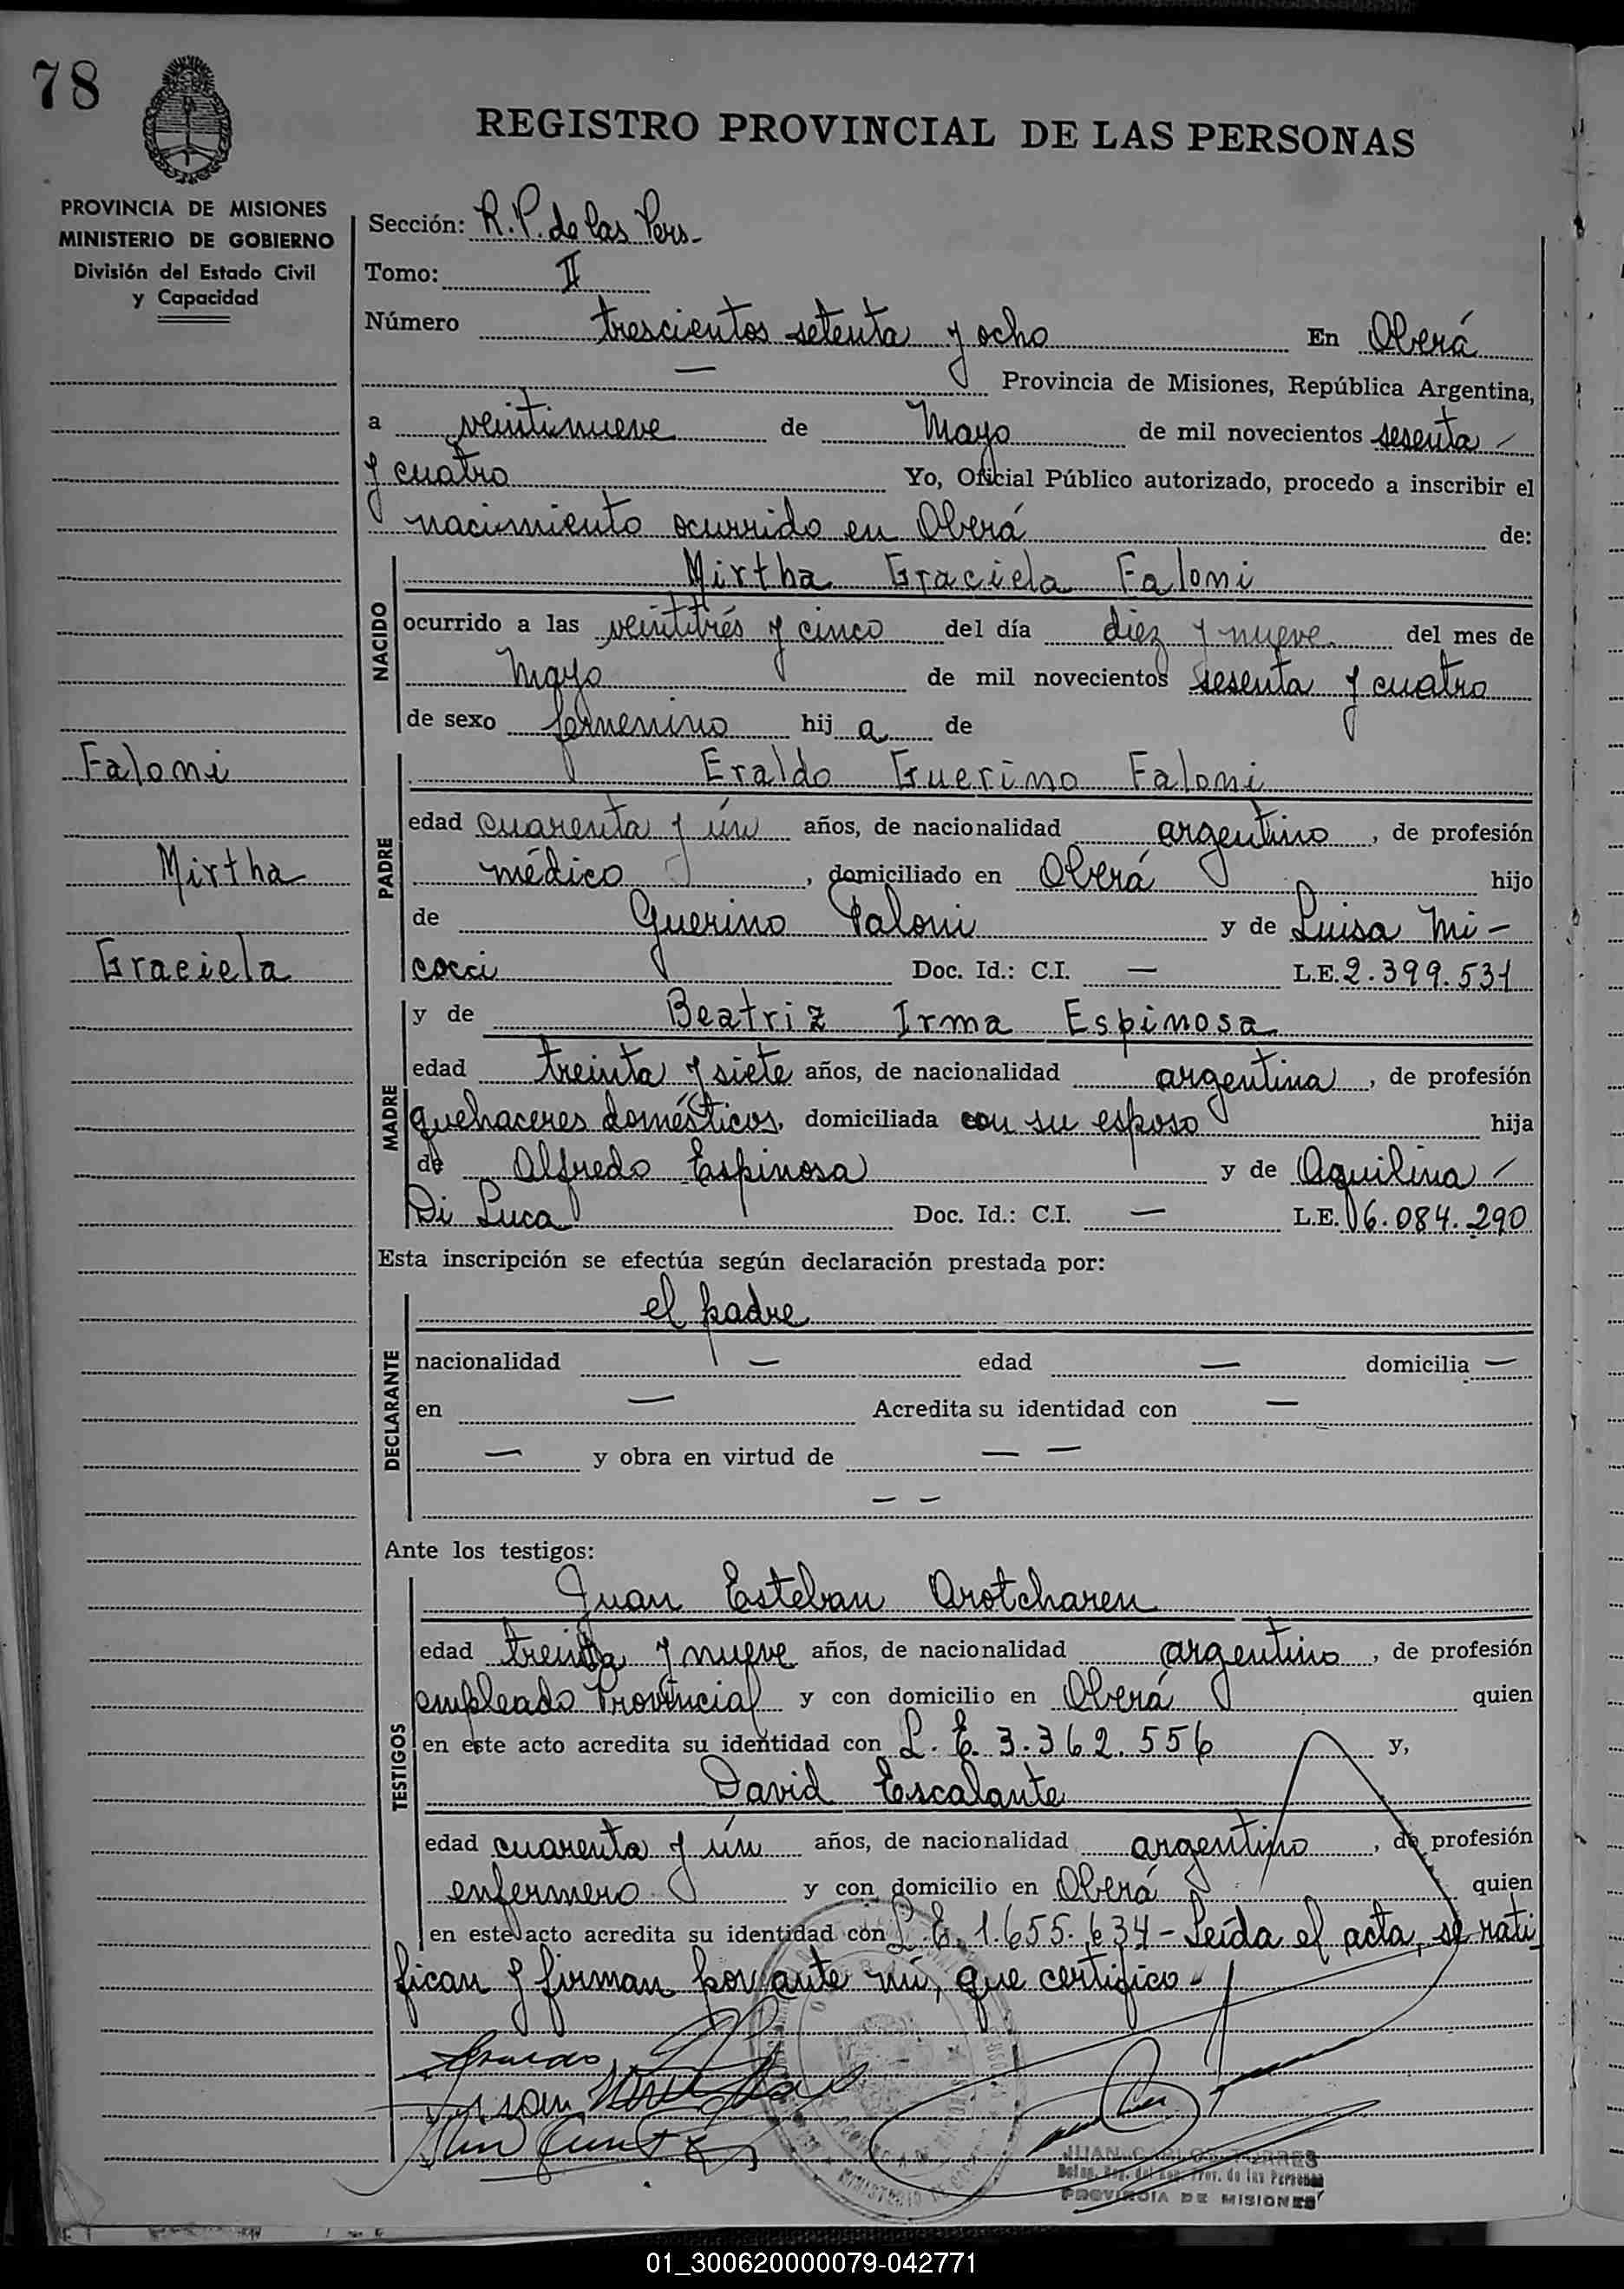 78
REGISTRO PROVINCIAL DE LAS PERSONAS
PROVINCIA DE MISIONES
MINISTERIO DE GOBIERNO
División del Estado Civil
y Capacidad
Sección: R.P. de las Pers-
Tomo: II
Número trescientos setenta y ocho En Oberá
— Provincia de Misiones, República Argentina,
a veintinueve de Mayo de mil novecientos sesenta
y cuatro Yo, Oficial Público autorizado, procedo a inscribir el
nacimiento ocurrido en Oberá de:
NACIDO
Mirtha Graciela Faloni
ocurrido a las veintitrés y cinco del día diez y nueve del mes de
Mayo de mil novecientos sesenta y cuatro
de sexo femenino hij a de
Faloni
Mirtha
Graciela
PADRE
Eraldo Guerino Faloni
edad cuarenta y ún años, de nacionalidad argentino, de profesión
médico, domiciliado en Oberá hijo
de Guerino Faloni y de Luisa Mi-
cocci Doc. Id.: C.I. — L.E. 2.399.531
MADRE
y de Beatriz Irma Espinosa
edad treinta y siete años, de nacionalidad argentina, de profesión
quehaceres domésticos, domiciliada con su esposo hija
de Alfredo Espinosa y de Aquilina
Di Luca Doc. Id.: C.I. — L.E. 6.084.290
Esta inscripción se efectúa según declaración prestada por:
DECLARANTE
el padre
nacionalidad — edad — domicilia —
en — Acredita su identidad con —
— y obra en virtud de — —
— —
Ante los testigos:
TESTIGOS
Juan Esteban Orotcharen
edad treinta y nueve años, de nacionalidad argentino, de profesión
empleado Provincial y con domicilio en Oberá quien
en este acto acredita su identidad con L.E. 3.362.556 y,
David Escalante
edad cuarenta y ún años, de nacionalidad argentino, de profesión
enfermero y con domicilio en Oberá quien
en este acto acredita su identidad con L.E. 1.655.634- Leída el acta, se rati-
fican y firman por ante mí, que certifico-
JUAN CARLOS TORRES
PROVINCIA DE MISIONES
01_300620000079-042771